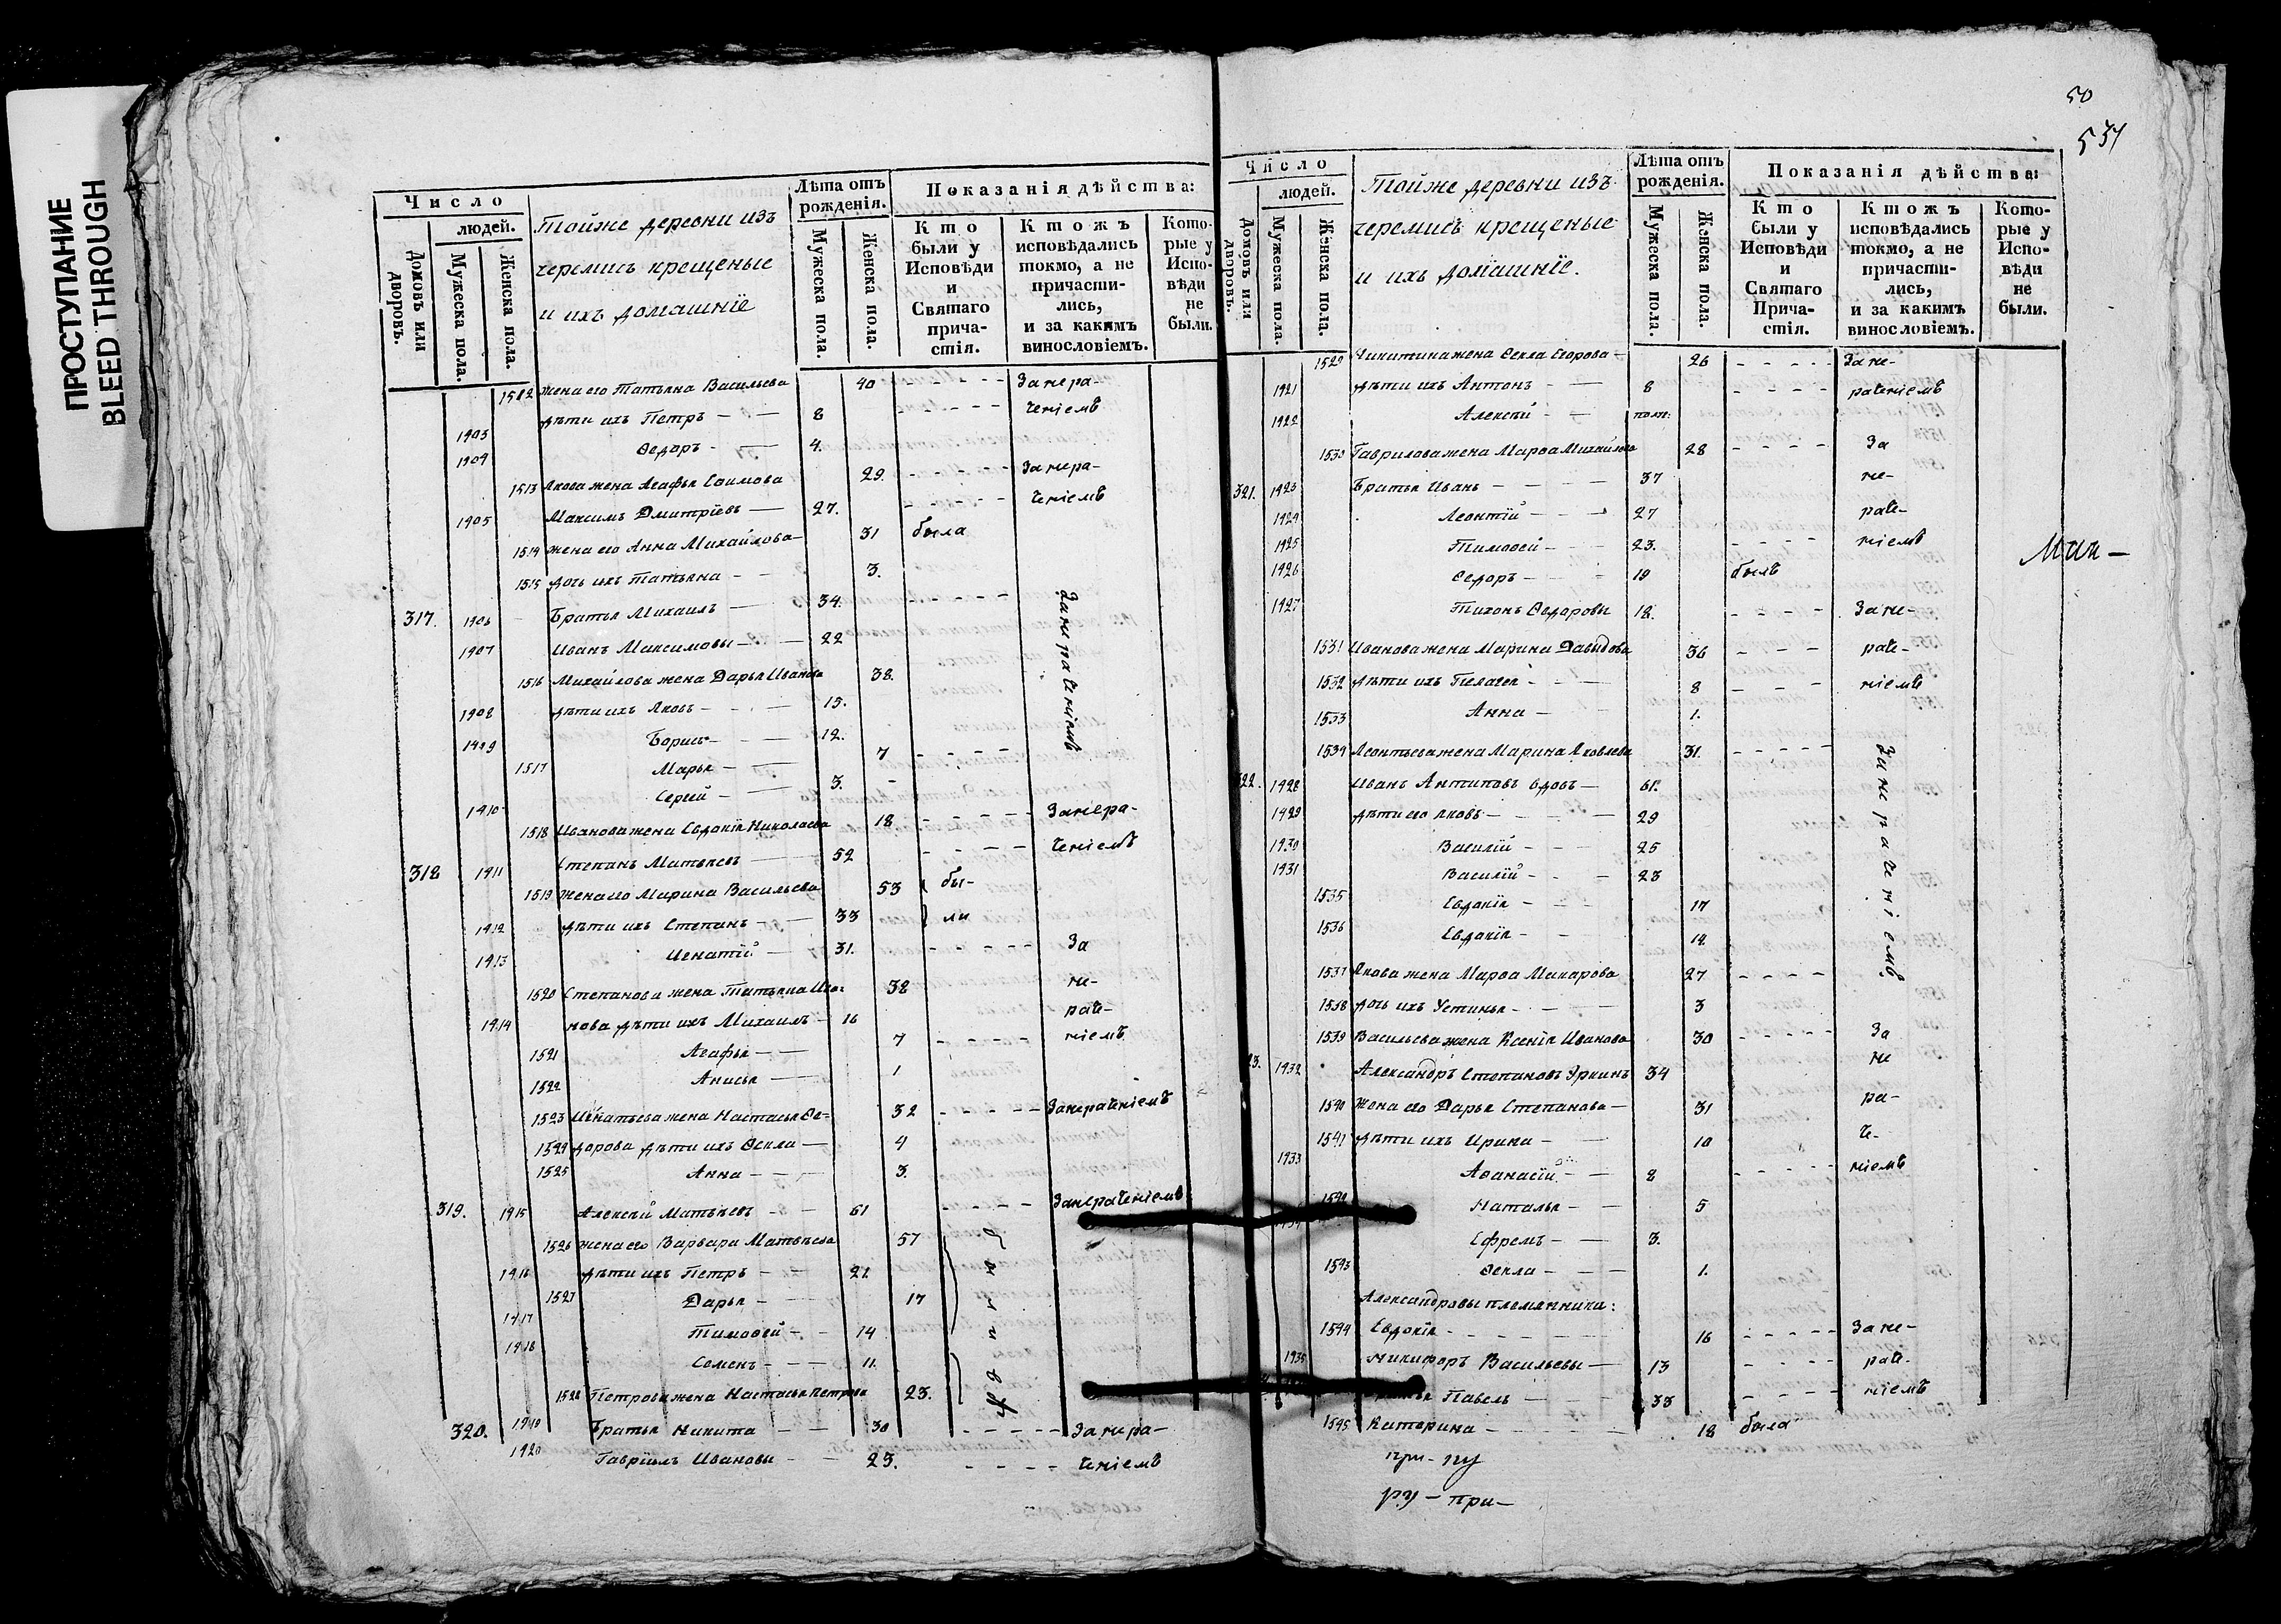 ПРОСТУПАНИЕ
BLEED THROUGH
Число
людей.
Домовъ или дворовъ.
Мужеска пола.
Женска пола.
Тойже деревни изъ
черемисъ крещеные
и ихъ домашнїе
Лѣта отъ рожденія.
Мужеска пола.
Женска пола.
Показанія дѣйства:
Кто были у Исповѣди и Святаго причастія.
Ктожъ исповѣдались токмо, а не причастились, и за какимъ винословіемъ.
Которые у Исповѣди не были.
1512 жена его Татьяна Васильева 40 - - - - За нера-
1903 дѣти их Петръ 8 - - - - ченіемъ
1904 Ѳедоръ 4.
1513 Якова жена Агафья Ефимова 29. - - - - За нера-
1905 Максимъ Дмитрїевъ 27. - - - - ченіемъ
1514 жена его Анна Михайлова 31 была
1515 дочь ихъ Татьяна 3.
317. 1906 Братья Михаилъ 34. - - - - За нераченіемъ
1907 Иванъ Максимовы 22
1516 Михайлова жена Дарья Иванова 38.
1908 дѣти ихъ Яковъ 15.
1909 Борисъ 12.
1517 Марья 7 - - - -
1910 Сергей 3.
1518 Иванова жена Евдокїя Николаева 18 - - - - За нера-
318 1911 Степанъ Матвѣевъ 52 - - - - ченіемъ
1519 жена его Марина Васильева 53 бы-
1912 дѣти ихъ Степанъ 33 ли
1913 Игнатїй 31. - - - - За
1520 Степанова жена Татьяна Ива- 38 не-
1914 нова дѣти ихъ Михаилъ 16 раче-
1521 Агафья 7 - - - - ніемъ
1522 Анисья 1
1523 Игнатьева жена Настасья Ѳе- 32 - - - - За нераченіемъ
1524 дорова дѣти ихъ Ѳекла 4
1525 Анна 3.
319. 1915 Алексѣй Матвѣевъ 61 - - - - За нераченіемъ
1526 жена его Варвара Матвѣева 57
1916 дѣти ихъ Петръ 21.
1527 Дарья 17
1917 Тимофей 14
1918 Семенъ 11.
1528 Петрова жена Настасья Петрова 23.
320. 1919 Братья Никита 30 - - - - За нера-
1920 Гаврїилъ Ивановы 23. - - - - ченіемъ
50
537
Число
людей.
Домовъ или дворовъ.
Мужеска пола.
Женска пола.
Тойже деревни изъ
черемисъ крещеные
и ихъ домашнїе.
Лѣта отъ рожденія.
Мужеска пола.
Женска пола.
Показанія дѣйства:
Кто были у Исповѣди и Святаго Причастія.
Ктожъ исповѣдались токмо, а не причастились, и за какимъ винословіемъ.
Которые у Исповѣди не были.
1529 Никитина жена Ѳекла Егорова 26 - - - - За не-
1921 дѣти ихъ Антонъ 8 - - - - раченіемъ
1922 Алексѣй полг:
1530 Гаврилова жена Марѳа Михайлова 28 - - - - За
321. 1923 Братья Иванъ 37 не-
1924 Леонтїй 27 раче-
1925 Тимоѳей 23. - - - - ніемъ
1926 Ѳедоръ 19 былъ
1927 Тихонъ Ѳедоровы 18. - - - - За не-
1531 Иванова жена Марина Давыдова 36 - - - раче-
1532 дѣти ихъ Пелагея 8 - - - ніемъ
1533 Анна 1.
1534 Леонтьева жена Марина Яковлева 31. - - - - За нераченіемъ
322. 1928 Иванъ Антиповъ вдовъ 61.
1929 дѣти его Яковъ 29
1930 Василїй 25
1931 Василїй 23
1535 Евдокїя 17
1536 Евдокїя 14.
1537 Якова жена Марѳа Макарова 27 - - - -
1538 дочь ихъ Устинья 3
1539 Васильева жена Ксенїя Иванова 30 - - - - За
23. 1932 Александръ Степановъ Эркинъ 34 не
1540 жена его Дарья Степанова 31 ра-
1541 дѣти ихъ Ирина 10 че-
1933 Аѳанасїй 8 - - - - ніемъ
1542 Наталья 5
Ефремъ 3.
1543 Ѳекла 1.
Александровы племянники:
1544 Евдокїя 16 - - - - За не-
1935 Никифоръ Васильевы 13 - - - - раче-
Павелъ 33 - - - - ніемъ
1545 Катерина 18 была
при-пу
ру-при-
Мик-